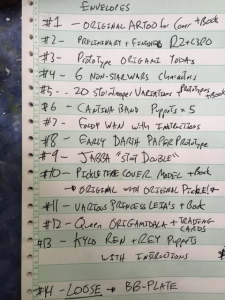 ENVELOPES
#1 - ORIGINAL ARTOO for Cover + Book
#2 - PRELIMINARY + FINISHED R2+C3PO
#3 - Prototype ORIGAMI YODAS
#4 - 6 NON-STAR WARS Characters
#5 - 20 Stormtrooper VARIATIONS Prototypes + Book
#6 - CANTINA BAND Puppets x 5
#7 - FOLDY WAN with INSTRUCTIONS
#8 - EARLY DARTH PAPER PROTOTYPE
#9 - JABBA "STUNT DOUBLE"
#10 - PICKLETINE COVER MODEL + Book
→ ORIGINAL WITH ORIGINAL PICKLE!
#11 - VARIOUS PRINCESS LEIA'S + Book
#12 - Queen ORIGAMIDALA + TRADING CARDS
#13 - KYLO REN + REY Puppets
WITH INSTRUCTIONS
#14 - LOOSE → BB-PLATE